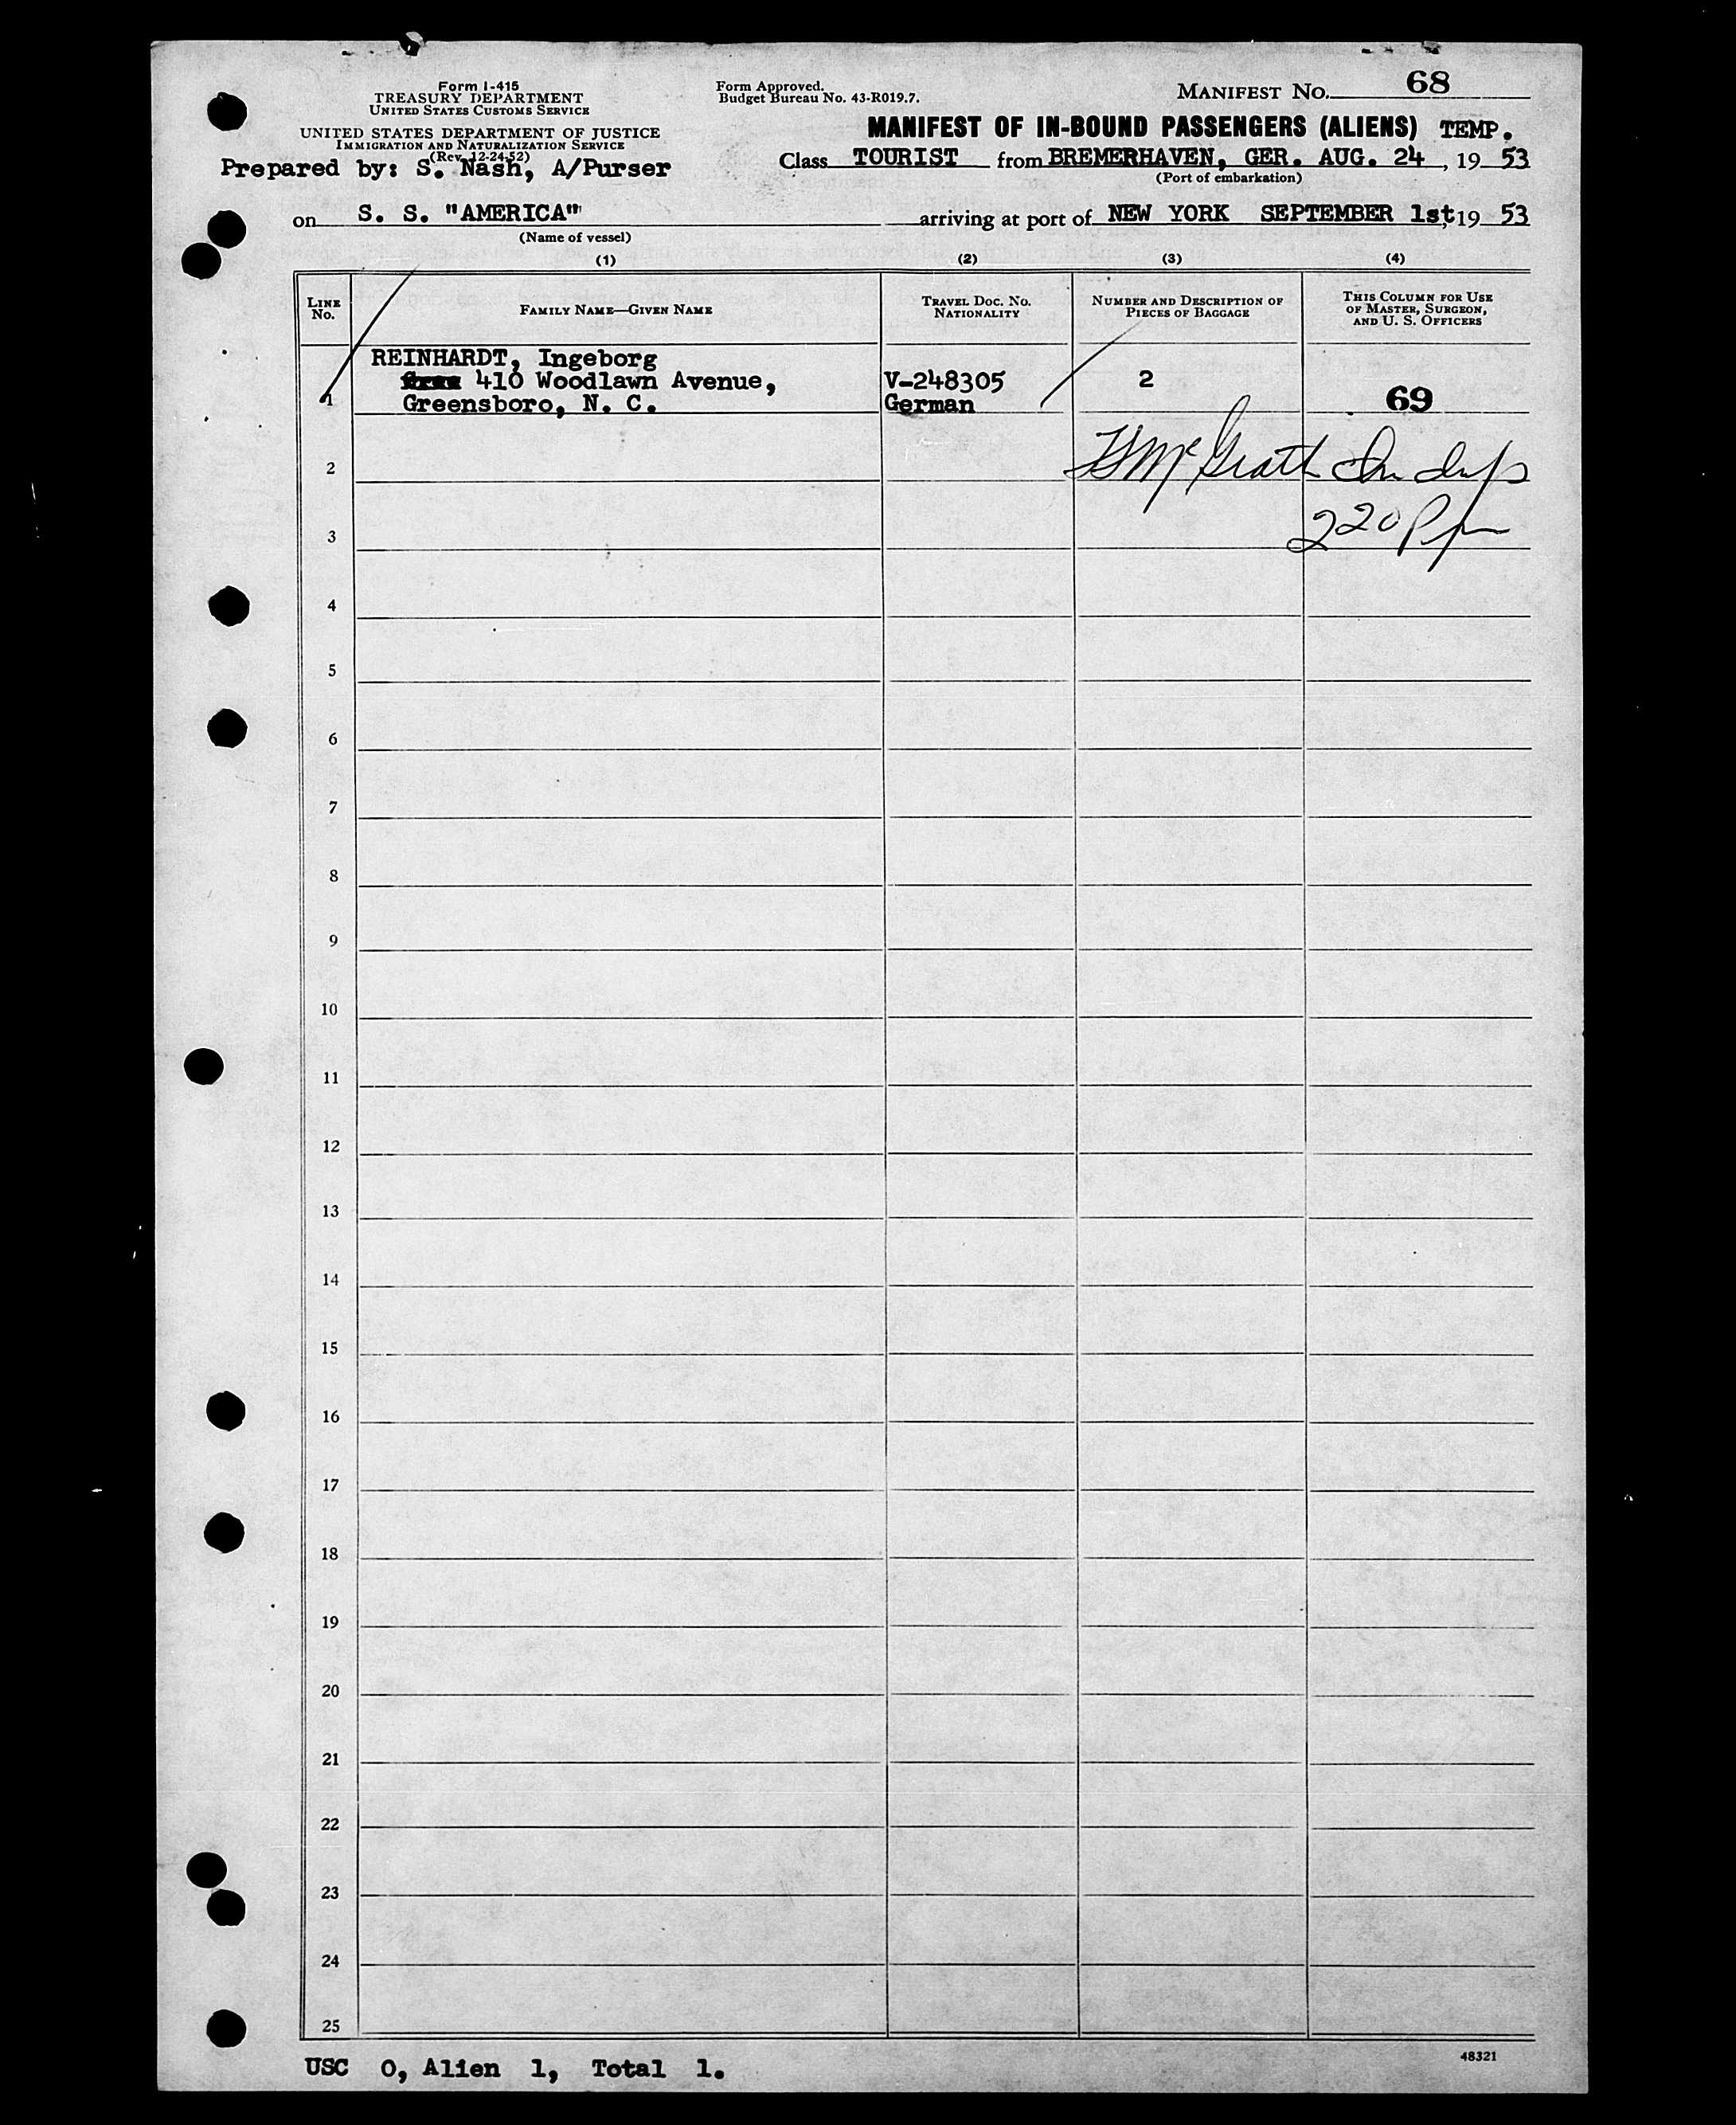 Form I-415
TREASURY DEPARTMENT
UNITED STATES CUSTOMS SERVICE
UNITED STATES DEPARTMENT OF JUSTICE
IMMIGRATION AND NATURALIZATION SERVICE
(Rev. 12-24-52)
Prepared by: S. Nash, A/Purser
Form Approved.
Budget Bureau No. 43-R019.7.
MANIFEST NO. 68
MANIFEST OF IN-BOUND PASSENGERS (ALIENS) TEMP.
Class TOURIST from BREMERHAVEN, GER. AUG. 24, 19 53
(Port of embarkation)
on S. S. "AMERICA" arriving at port of NEW YORK SEPTEMBER 1st, 19 53
(Name of vessel)
(1) (2) (3) (4)
LINE NO.
FAMILY NAME—GIVEN NAME
TRAVEL DOC. NO.
NATIONALITY
NUMBER AND DESCRIPTION OF
PIECES OF BAGGAGE
THIS COLUMN FOR USE
OF MASTER, SURGEON,
AND U. S. OFFICERS
REINHARDT, Ingeborg
410 Woodlawn Avenue, V-248305 2
1 Greensboro, N. C. German 69
2 McGrath
3 220 Pm
4
5
6
7
8
9
10
11
12
13
14
15
16
17
18
19
20
21
22
23
24
25
USC 0, Alien 1, Total 1.
48321